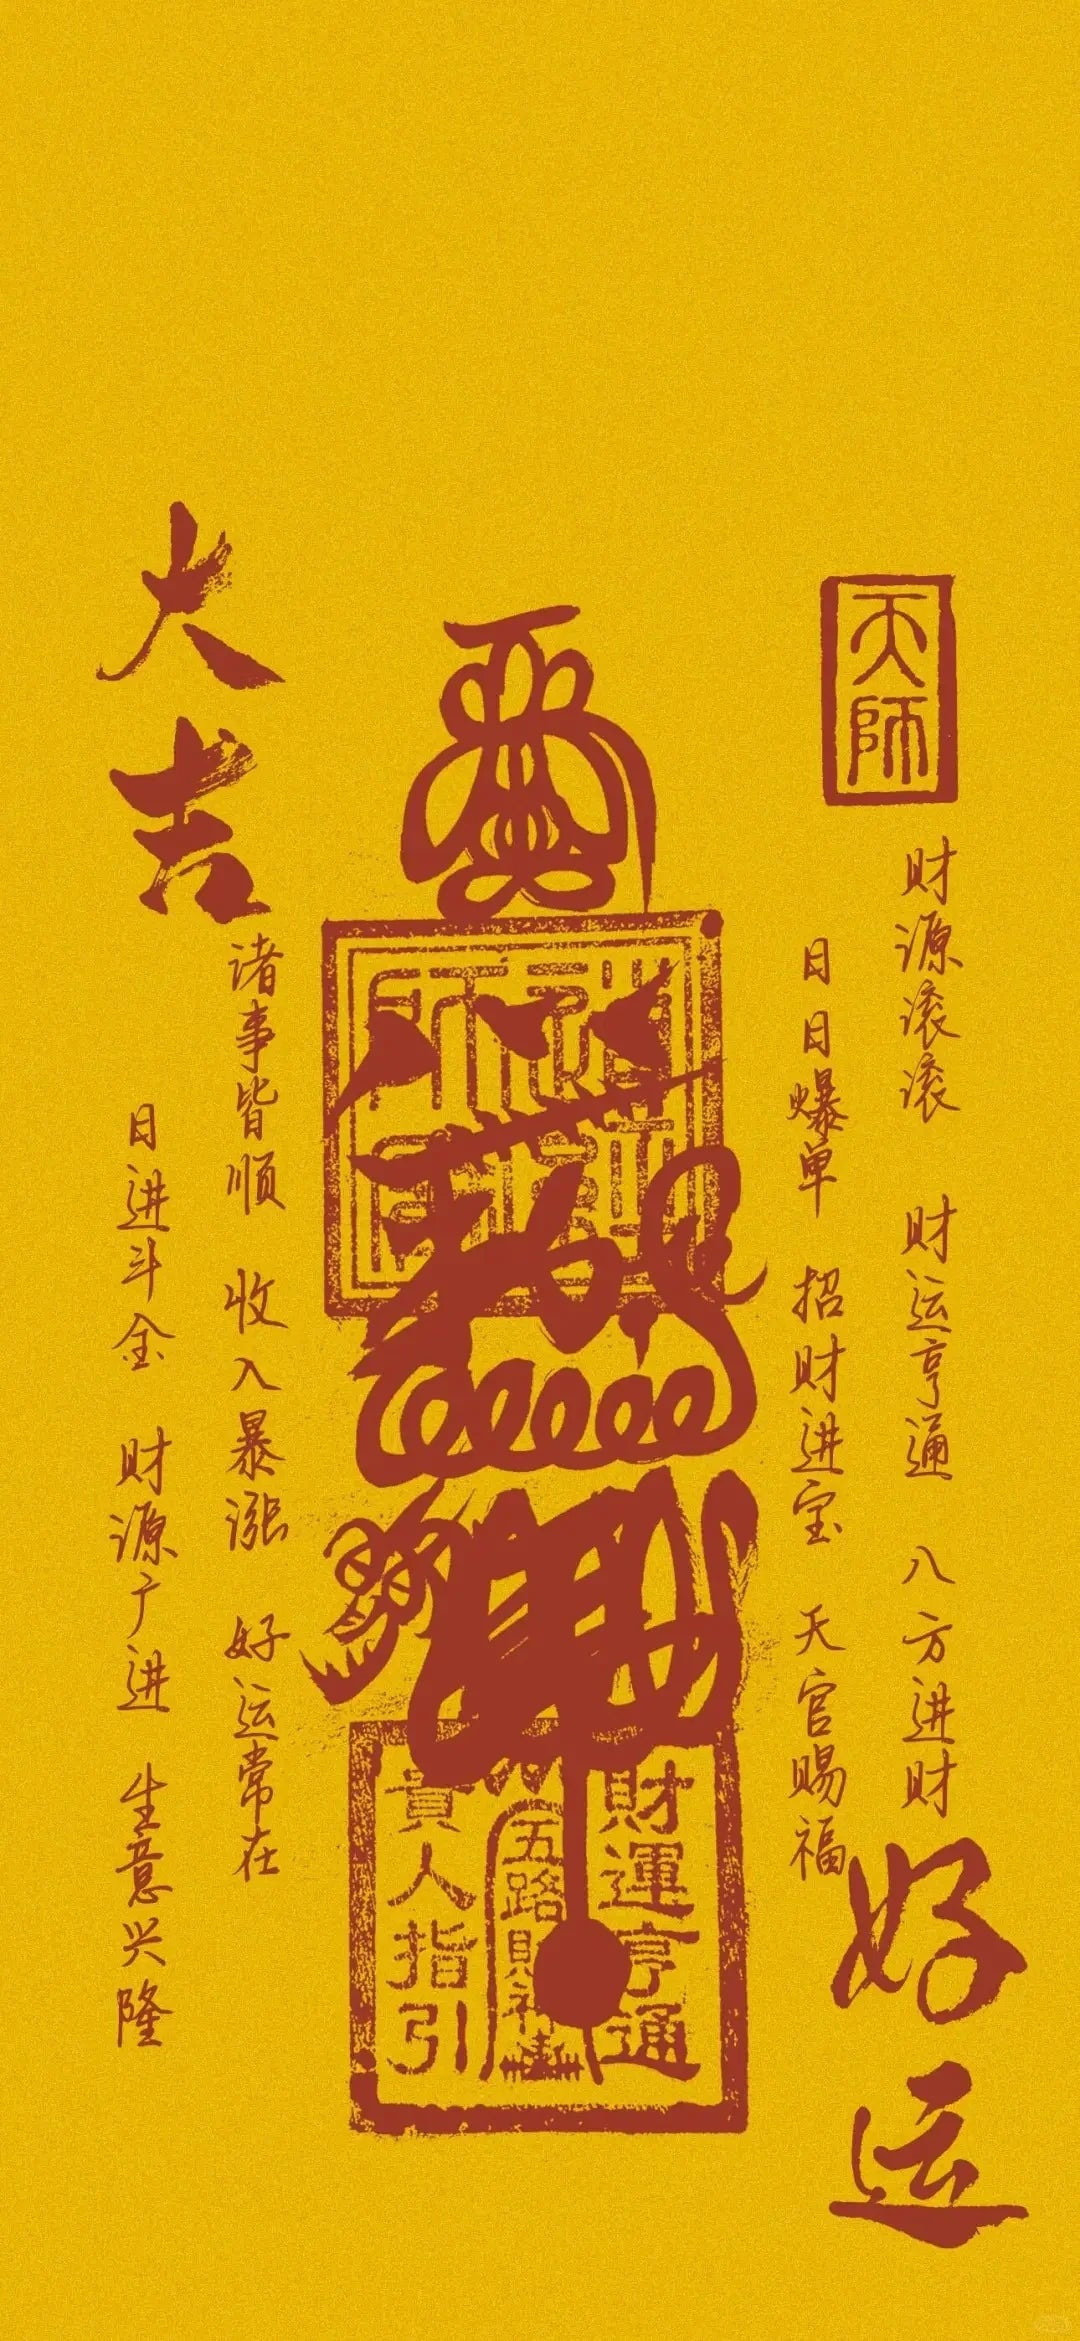 天師
财源滚滚 财运亨通 八方进财
好运
日日爆单 招财进宝 天官赐福
財運亨通
五路財神
貴人指引
大吉
诸事皆顺 收入暴涨 好运常在
日进斗金 财源广进 生意兴隆